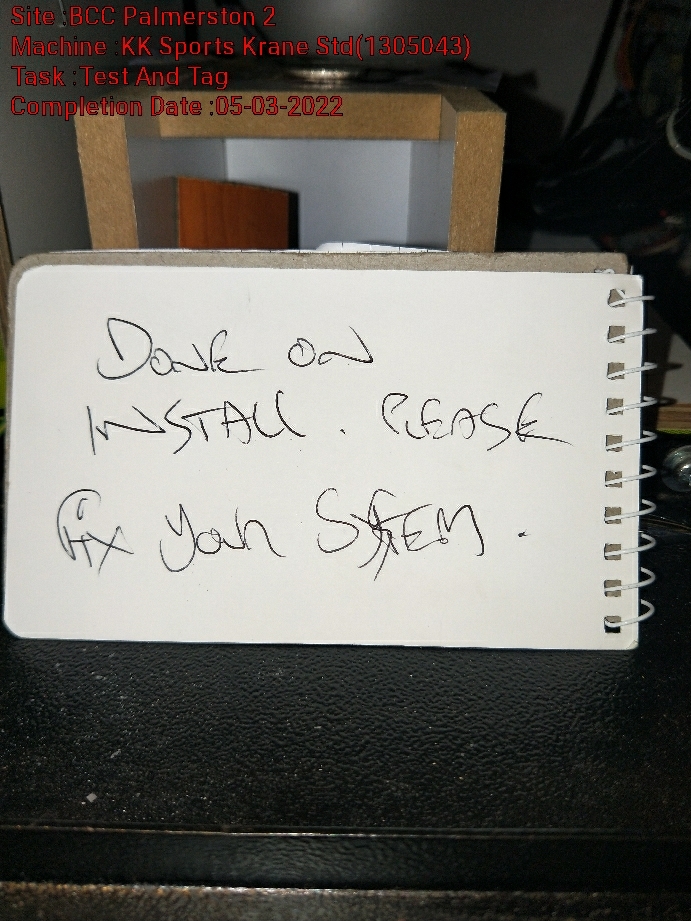 Site :BCC Palmerston 2
Machine :KK Sports Krane Std(1305043)
Task :Test And Tag
Completion Date :05-03-2022
DONE ON
INSTALL. PLEASE
FIX YOUR SYSTEM.